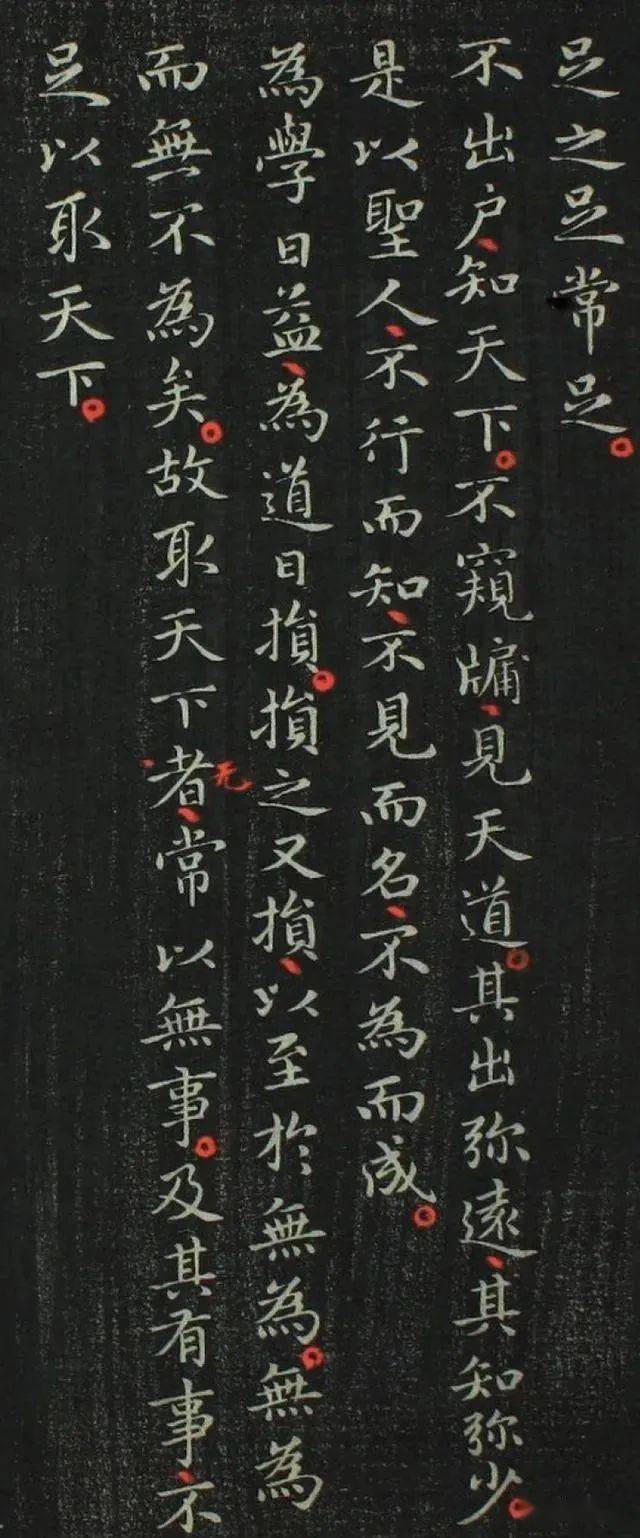 足之足常足。
不出户、知天下。不窺牖、見天道。其出弥遠、其知弥少。
是以聖人、不行而知、不見而名、不為而成。
為學日益、為道日損。損之又損、以至於無為。無為
而無不為矣。故取天下者、无常以無事。及其有事、不
足以取天下。